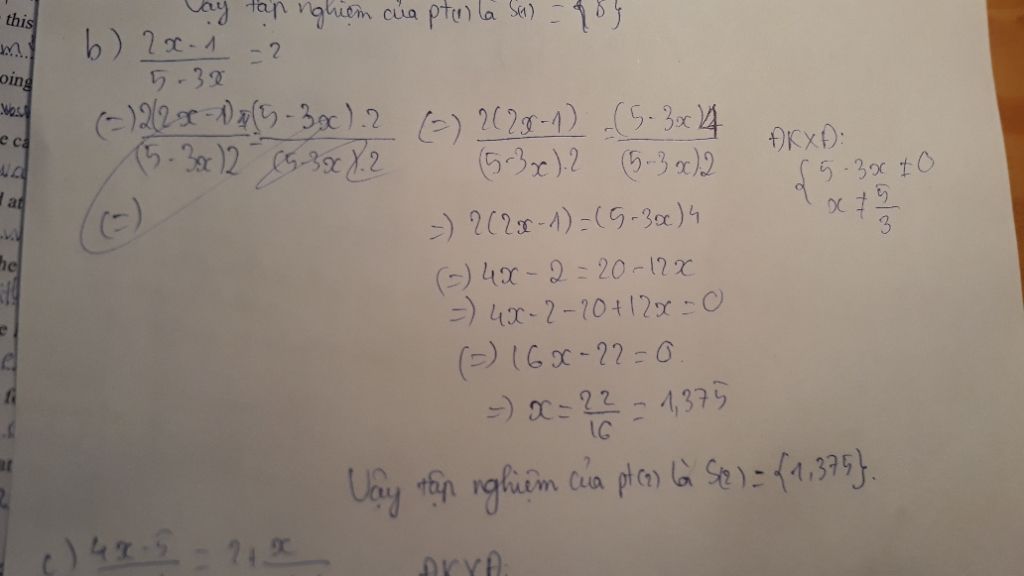 this
Vậy tập nghiệm của pt(1) là S(1) = {8}
b) \frac{2x-1}{5-3x} = 2
oing
(=) \frac{2(2x-1)}{(5-3x)2} = \frac{(5-3x).2}{(5-3x).2} (=) \frac{2(2x-1)}{(5-3x).2} = \frac{(5-3x)4}{(5-3x)2} ĐKXĐ:
{ 5-3x ≠ 0
x ≠ \frac{5}{3}
at
(=)
=) 2(2x-1) = (5-3x)4
(=) 4x - 2 = 20 - 12x
=) 4x - 2 - 20 + 12x = 0
(=) 16x - 22 = 0.
=) x = \frac{22}{16} = 1,375
Vậy tập nghiệm của pt(2) là S(2) = {1,375}.
c) \frac{4x-5} = 2 + \frac{x} ĐKXĐ: